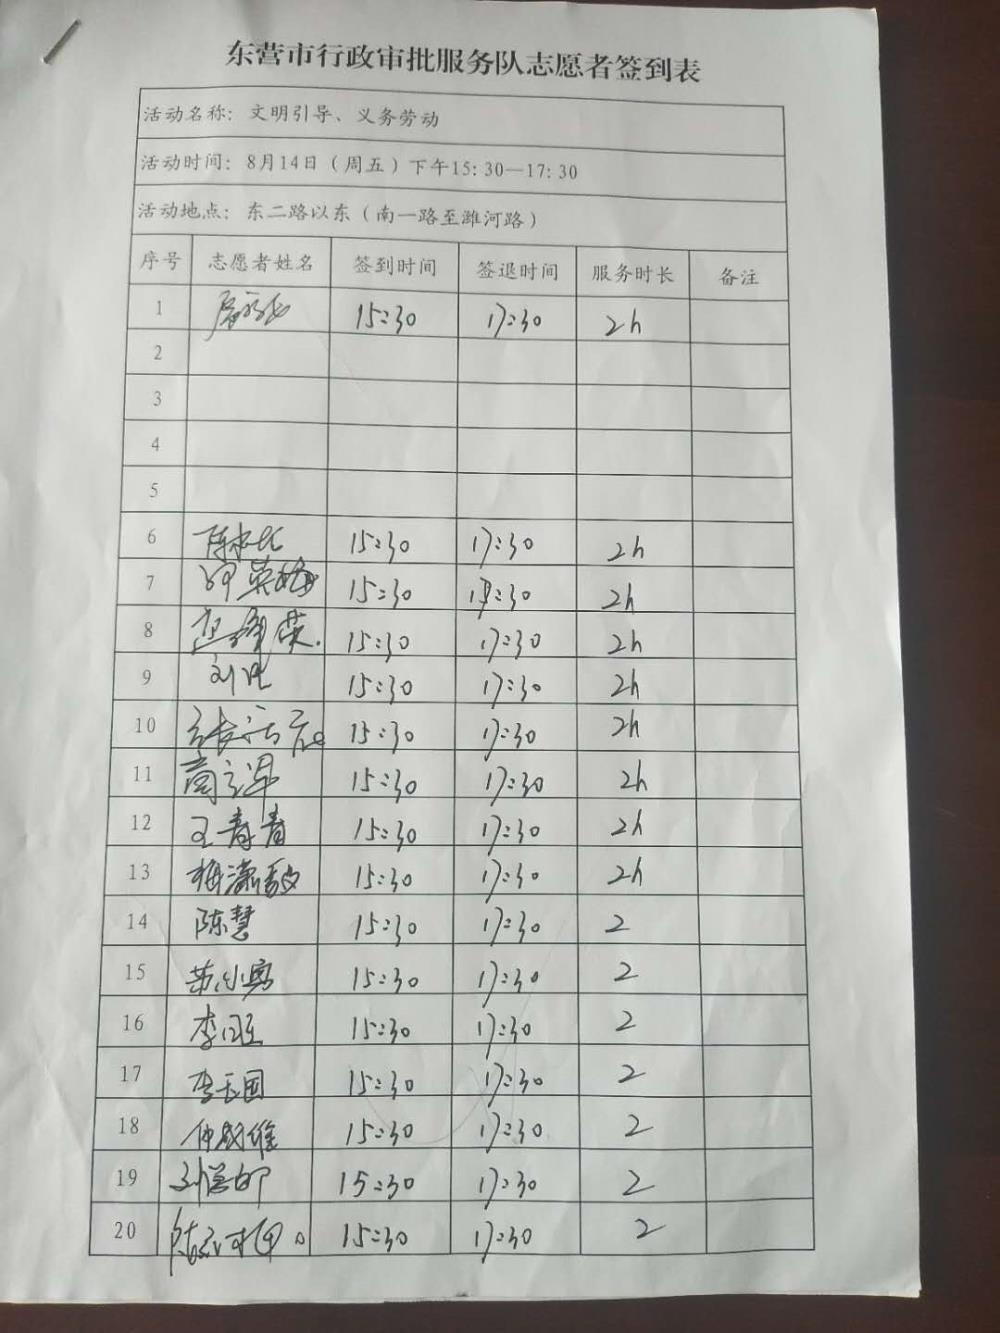 东营市行政审批服务队志愿者签到表
活动名称：文明引导、义务劳动
活动时间：8月14日（周五）下午15：30—17：30
活动地点：东二路以东（南一路至潍河路）
序号 志愿者姓名 签到时间 签退时间 服务时长 备注
1 15:30 17:30 2h
2
3
4
5
6 15:30 17:30 2h
7 15:30 17:30 2h
8 15:30 17:30 2h
9 15:30 17:30 2h
10 15:30 17:30 2h
11 15:30 17:30 2h
12 王青青 15:30 17:30 2h
13 梅潇 15:30 17:30 2h
14 陈慧 15:30 17:30 2
15 15:30 17:30 2
16 15:30 17:30 2
17 李玉国 15:30 17:30 2
18 仲 维 15:30 17:30 2
19 15:30 17:30 2
20 15:30 17:30 2